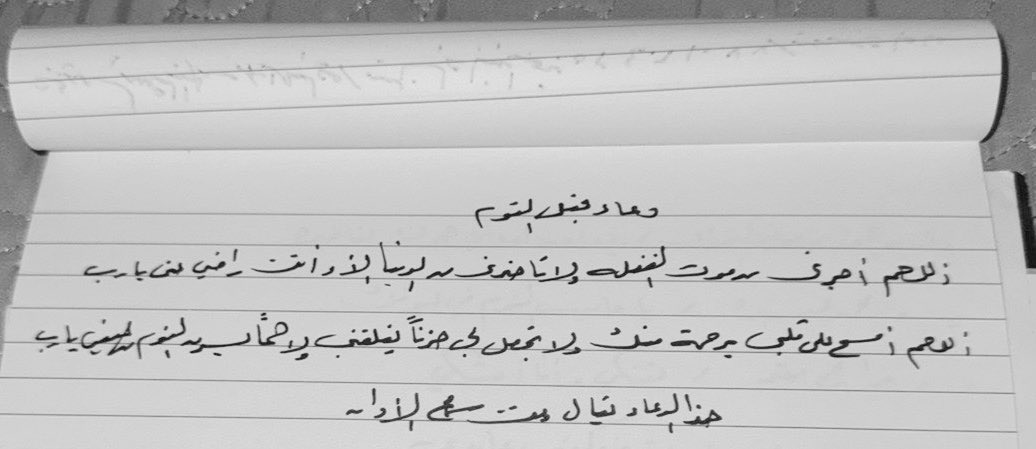 دعاء قبل النوم
اللهم أجرني من موت الغفله ولا تاخذني من الدنيا الا و أنت راضي عني يارب
اللهم أمسح على قلبي برحمة منك ولا تجعل لي حزناً يقلقني ولا هماً يسرق النوم من عيني يارب
هذا الدعاء يقال وقت سماع الأذان